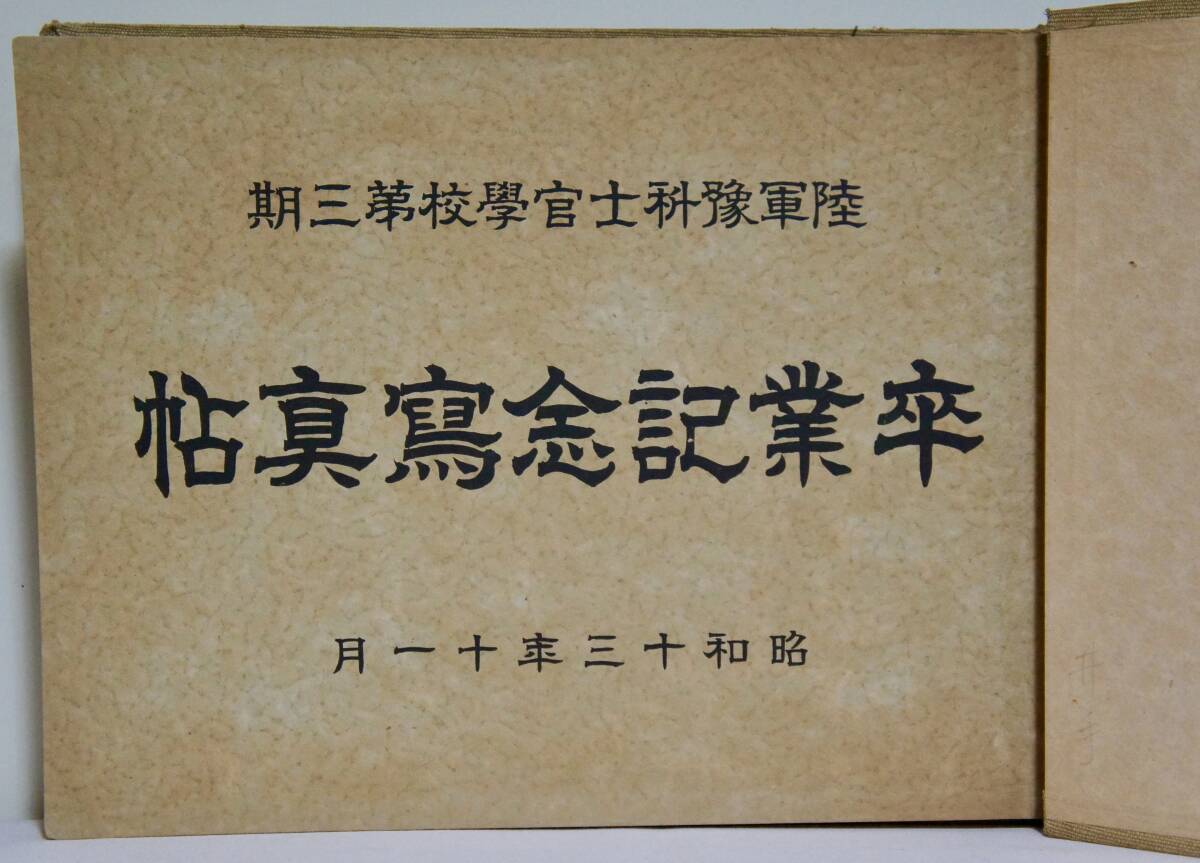 陸軍豫科士官學校第三期
卒業記念寫眞帖
昭和十三年十一月